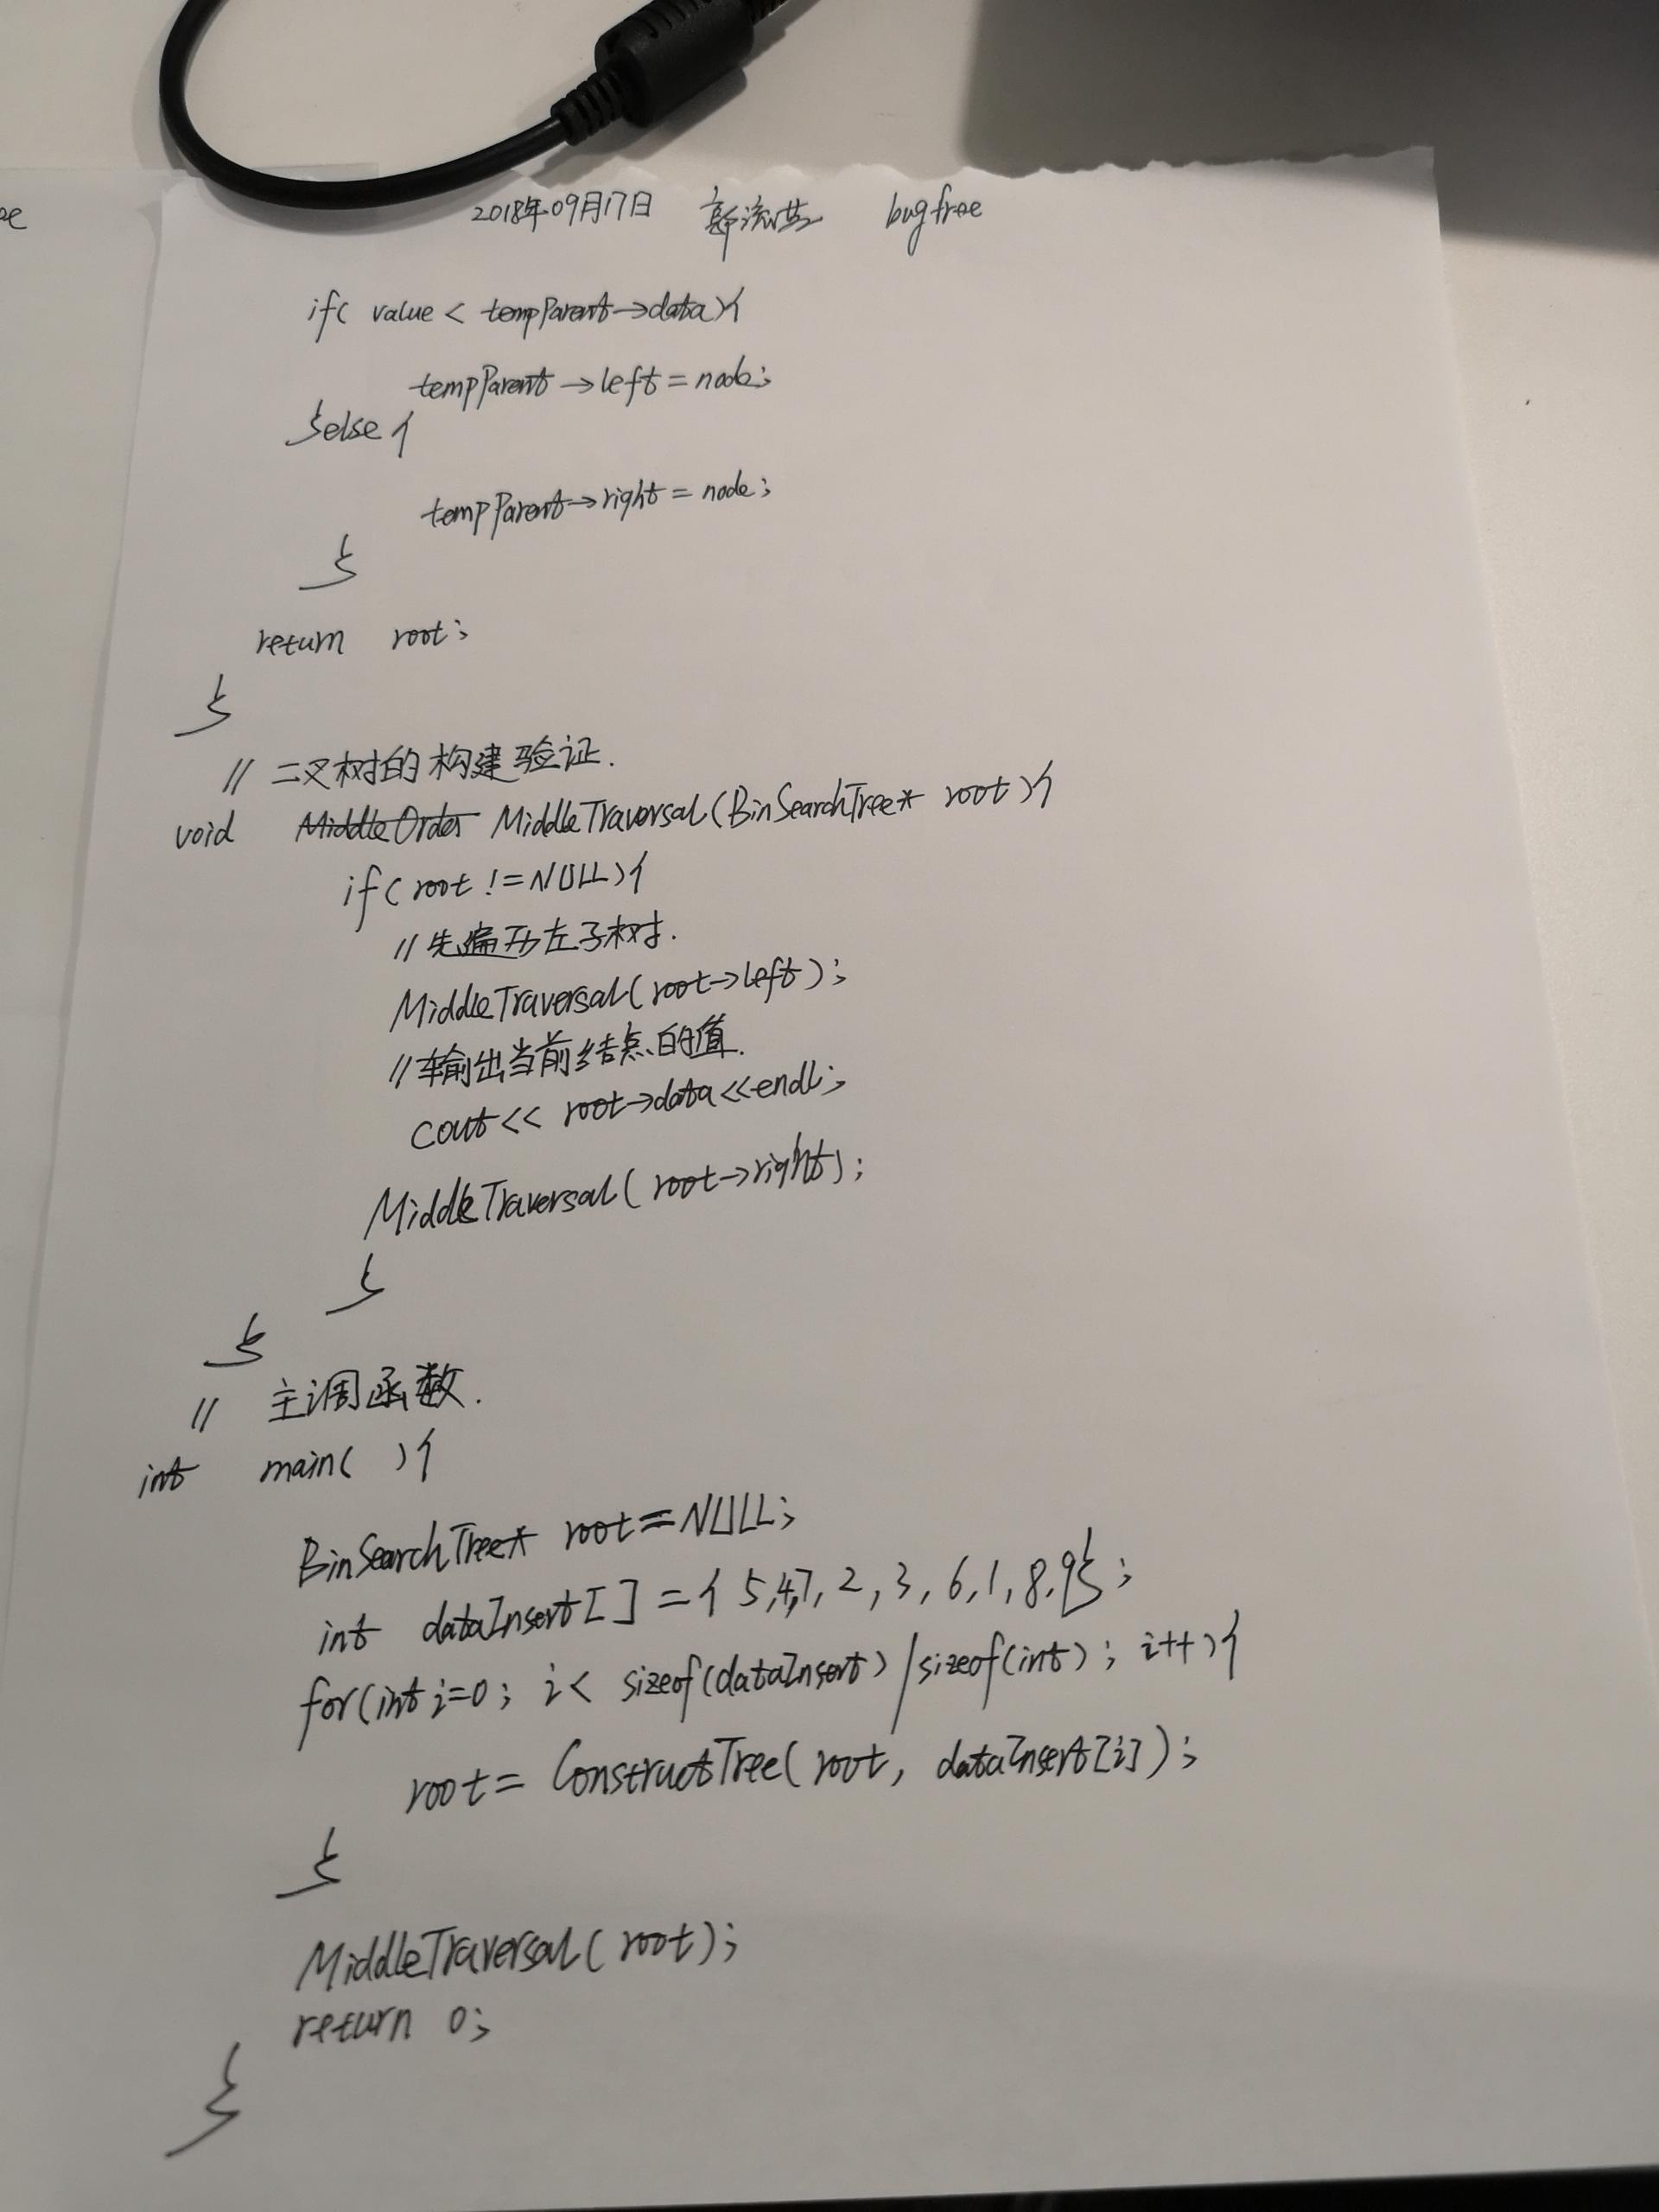 2018年09月17日 bugfree
if( value < tempParent->data){
tempParent->left = node;
}else{
tempParent->right = node;
}
return root;
}
// 二叉树的构建验证.
void MiddleOrder MiddleTraversal(BinSearchTree* root){
if(root != NULL){
// 先遍历左子树.
MiddleTraversal(root->left);
// 输出当前结点的值.
cout<< root->data<<endl;
MiddleTraversal(root->right);
}
}
// 主调函数.
int main( ){
BinSearchTree* root=NULL;
int dataInsert[] = { 5,4,7, 2, 3, 6, 1, 8, 9};
for(int i=0; i< sizeof(dataInsert)/sizeof(int); i++){
root= ConstructTree(root, dataInsert[i]);
}
MiddleTraversal(root);
return 0;
}